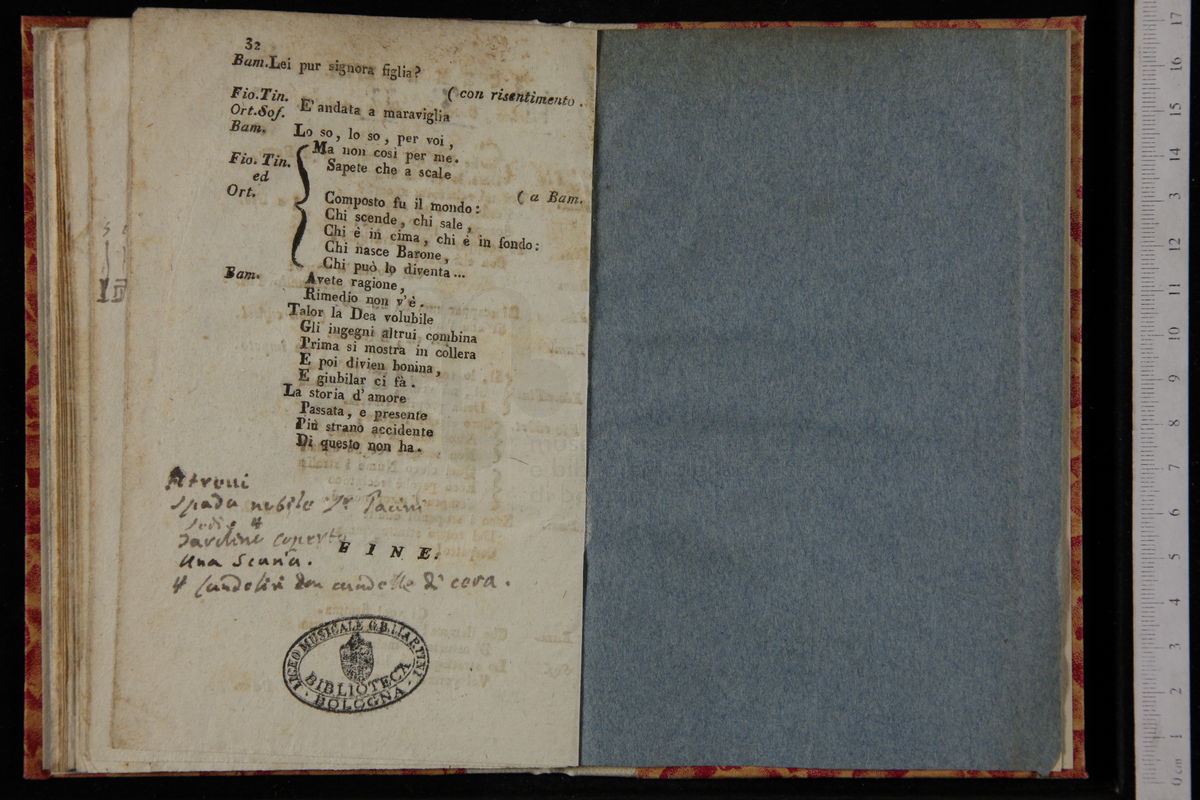 32
Bam. Lei pur signora figlia?
( con risentimento.
Fio. Tin.
Ort. Sof. E' andata a maraviglia
Bam. Lo so, lo so, per voi,
Ma non così per me.
Fio. Tin. Sapete che a scale
ed
( a Bam.
Ort. Composto fu il mondo:
Chi scende, chi sale,
Chi è in cima, chi è in fondo:
Chi nasce Barone,
Chi può lo diventa...
Bam. Avete ragione,
Rimedio non v'è.
Talor la Dea volubile
Gli ingegni altrui combina
Prima si mostra in collera
E poi divien bonina,
E giubilar ci fà.
La storia d'amore
Passata, e presente
Più strano accidente
Di questo non ha.
Spada nobile Sr. Pacini
Sedie 4
Tavolino coperto
Una Scrania.
4 Candelieri con candelle di cera.
FINE.
LICEO MUSICALE G.B. MARTINI
BIBLIOTECA
BOLOGNA
0 cm 1 2 3 4 5 6 7 8 9 10 11 12 13 14 15 16 17